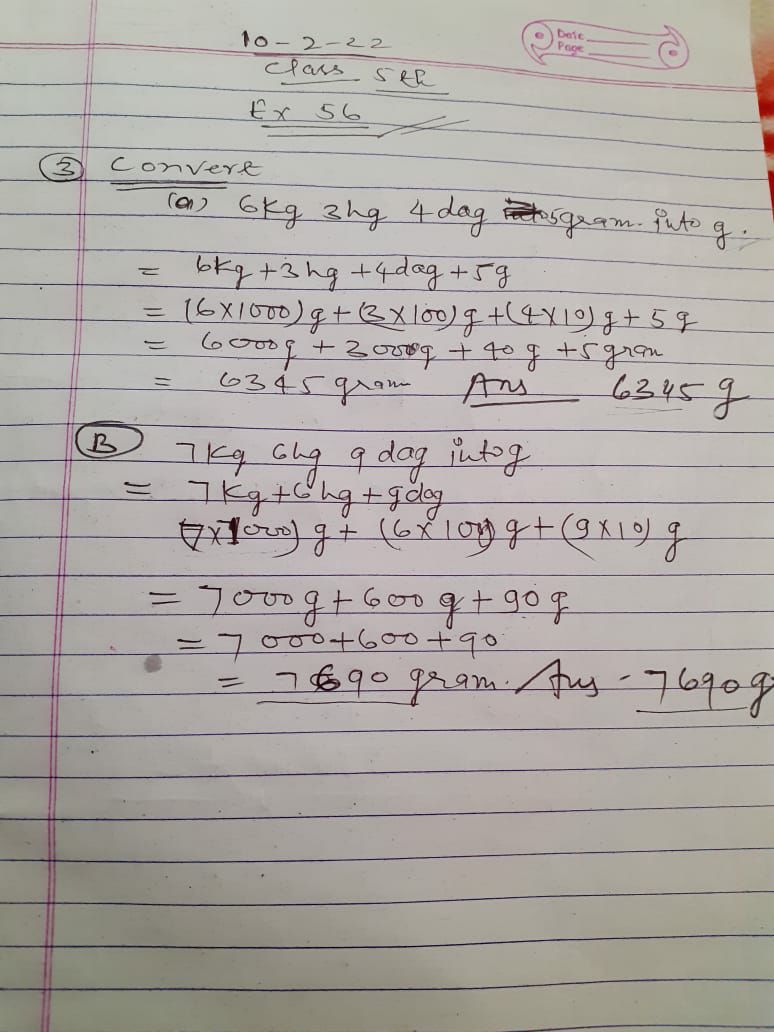 10-2-22
Date
Page
Class 5th
Ex 56
3 Convert
(a) 6kg 3hg 4dag 5gram. into g.
= 6kg+3hg+4dag+5g
= (6×1000)g+(3×100)g+(4×10)g+5g
= 6000g+3000g+40g+5gram
= 6345gram Ans 6345g
B 7kg 6hg 9dag into g
= 7kg+6hg+9dag
(7×1000)g+(6×100)g+(9×10)g
= 7000g+600g+90g
= 7000+600+90
= 7690 gram. Ans - 7690g